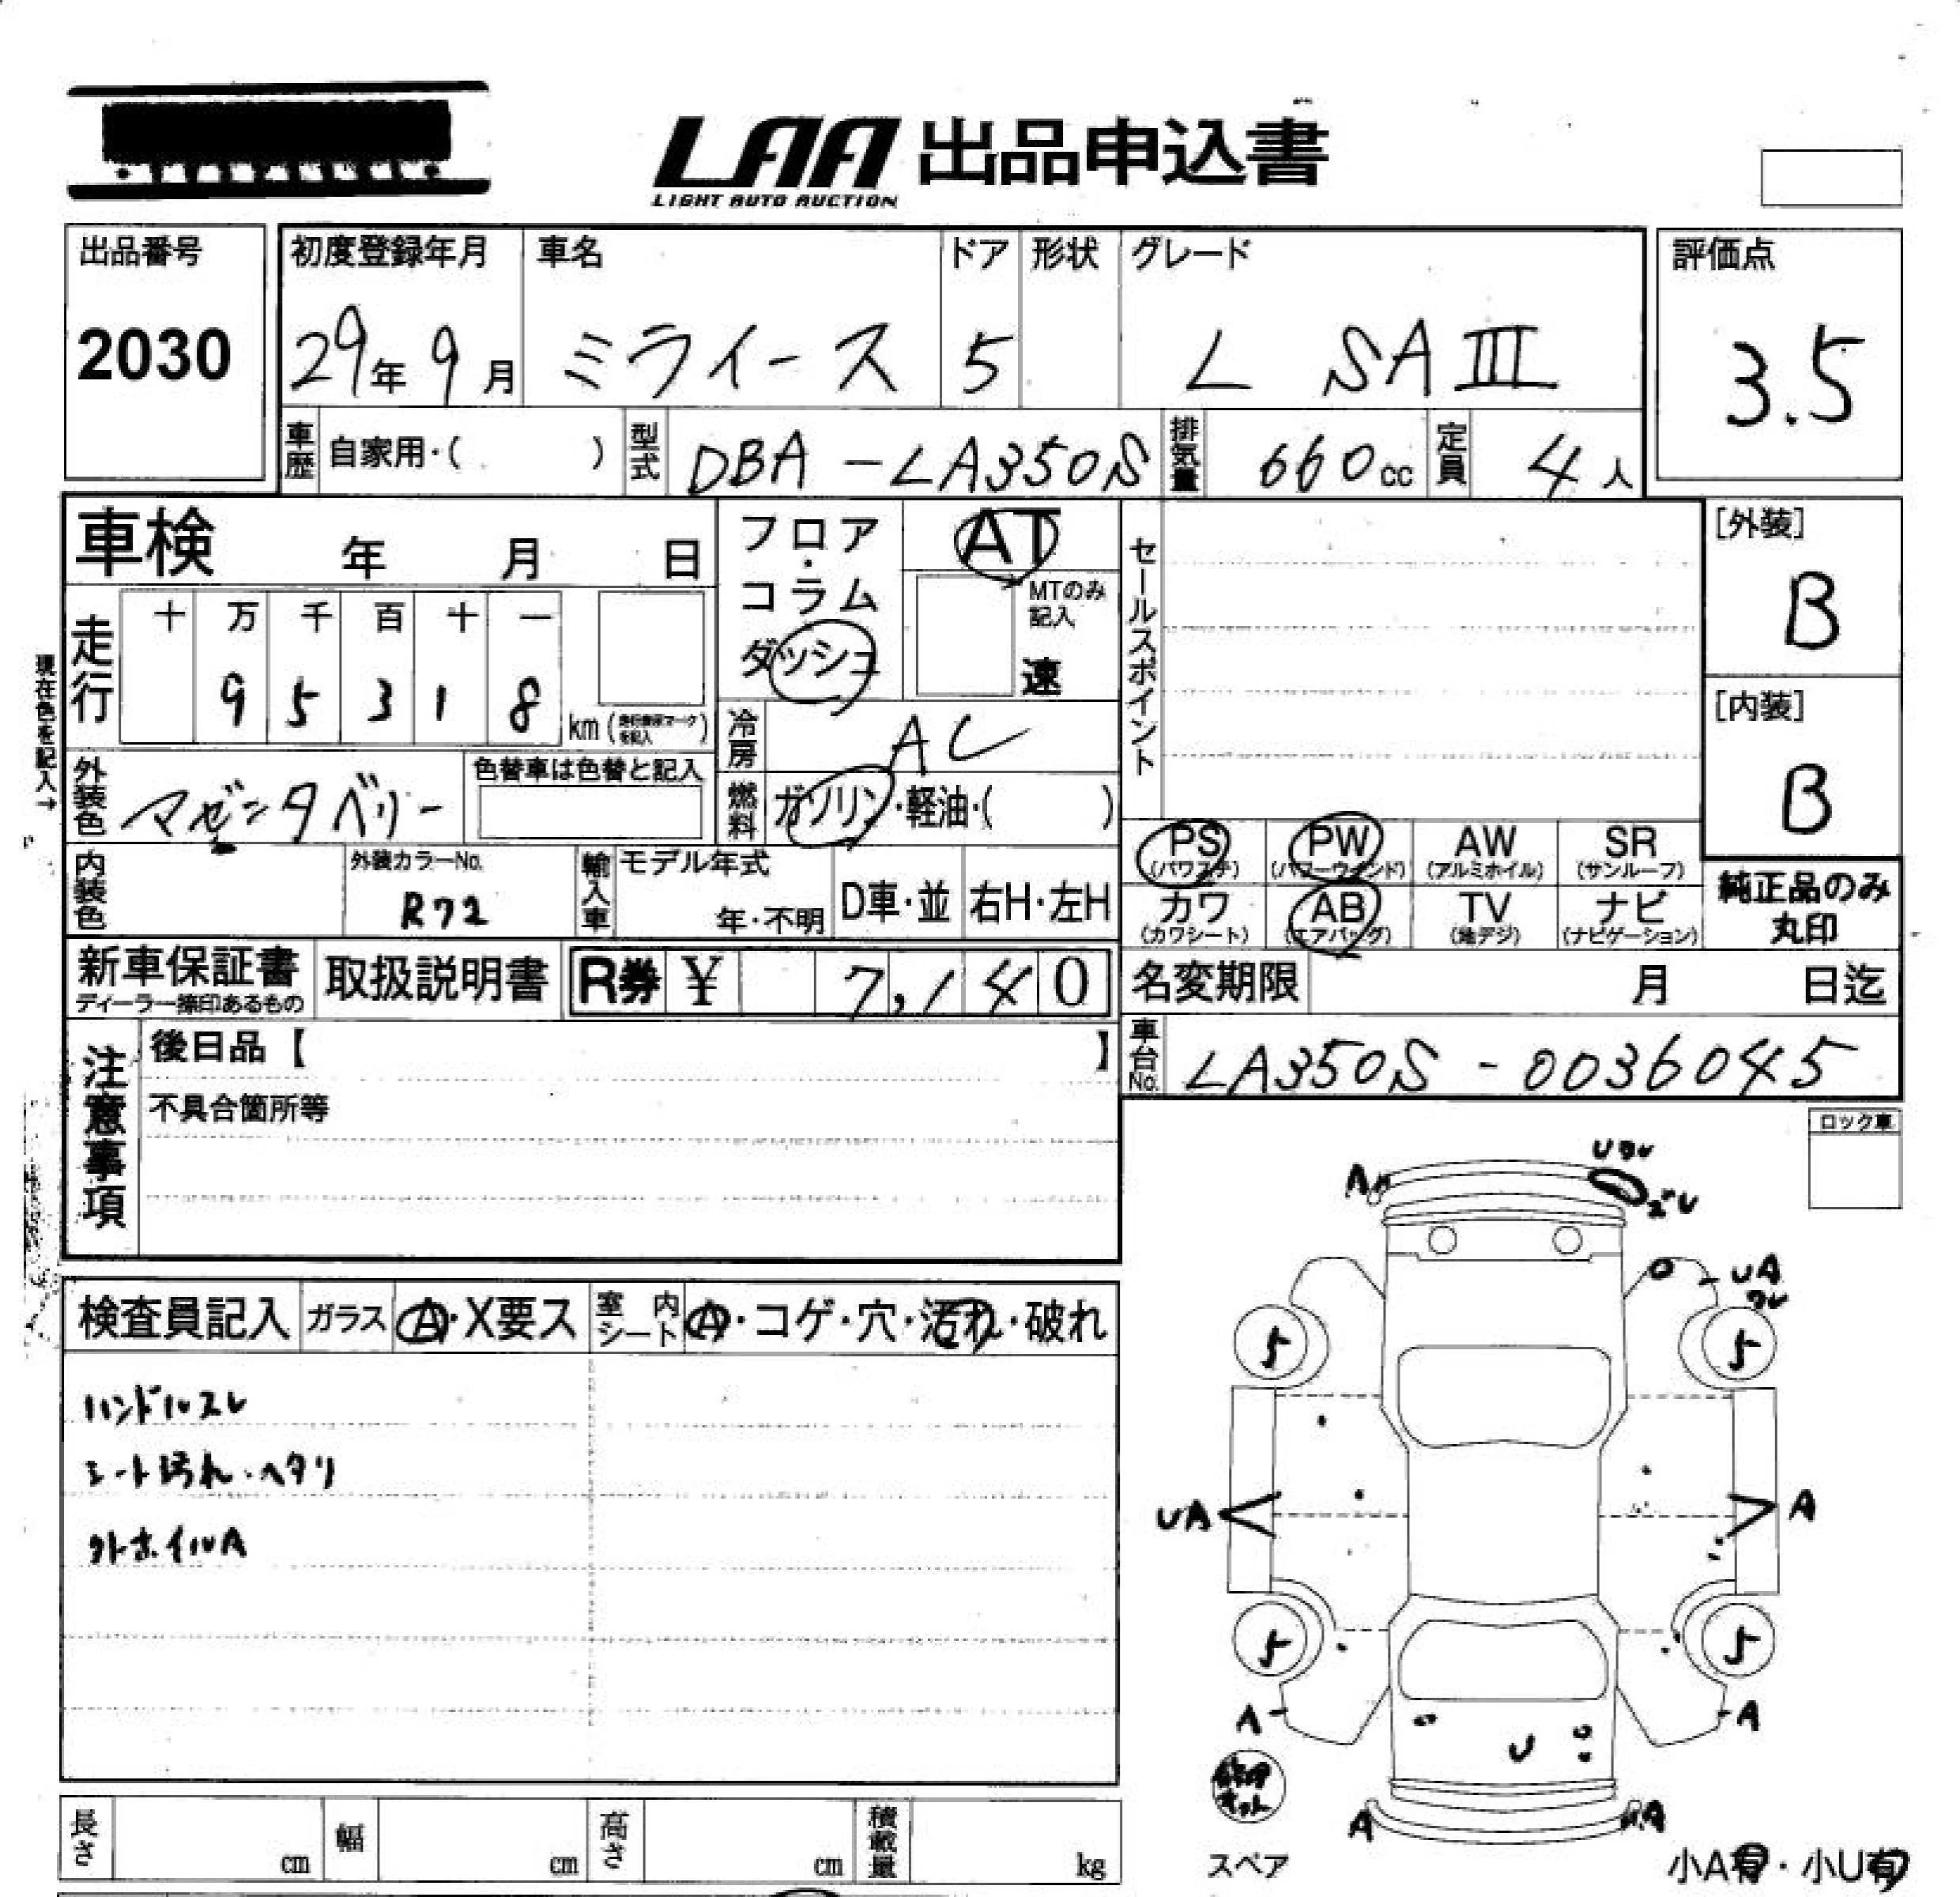 LAA 出品申込書
LIGHT AUTO AUCTION
出品番号
2030
初度登録年月
29年 9月
車名
ミライース
ドア
5
形状
グレード
L SAⅢ
評価点
3.5
車歴
自家用・( )
型式
DBA-LA350S
排気量
660cc
定員
4人
車検 年 月 日
フロア・コラム
ダッシュ
AT
MTのみ記入
速
セールスポイント
[外装]
B
[内装]
B
現在色を記入→
走行
十 万 千 百 十 一
9 5 3 1 8
km
冷房
AC
外装色
マゼンタベリー
色替車は色替と記入
燃料
ガソリン・軽油・( )
PS (パワステ)
PW (パワーウインド)
AW (アルミホイル)
SR (サンルーフ)
カワ (カワシート)
AB (エアバッグ)
TV (地デジ)
ナビ (ナビゲーション)
純正品のみ
丸印
内装色
外装カラーNo.
R72
輸入車
モデル年式
年・不明
D車・並
右H・左H
新車保証書
ディーラー捺印あるもの
取扱説明書
R券 ¥ 7,140
名変期限 月 日迄
車台No.
LA350S-0036045
注意事項
後日品【 】
不具合箇所等
ロック車
検査員記入
ガラス
A・X要ス
室内シート
A・コゲ・穴・汚れ・破れ
ハンドルスレ
シート汚れ・ヘタリ
外ホイルA
A
Uワレ
UA
ワレ
5
5
UA
A
5
5
A
A
U
A
A
スペア
小A有・小U有
長さ cm
幅 cm
高さ cm
積載量 kg